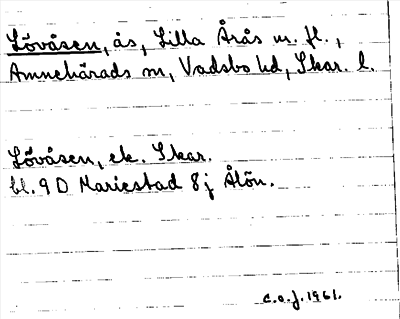 Lövåsen, ås, Lilla Årås m. fl.,
Amnehärads sn, Vadsbo hd, Skar. l.
Lövåsen, ek. Skar.
bl. 9 D Mariestad 8j Ålön.
C.O.J. 1961.